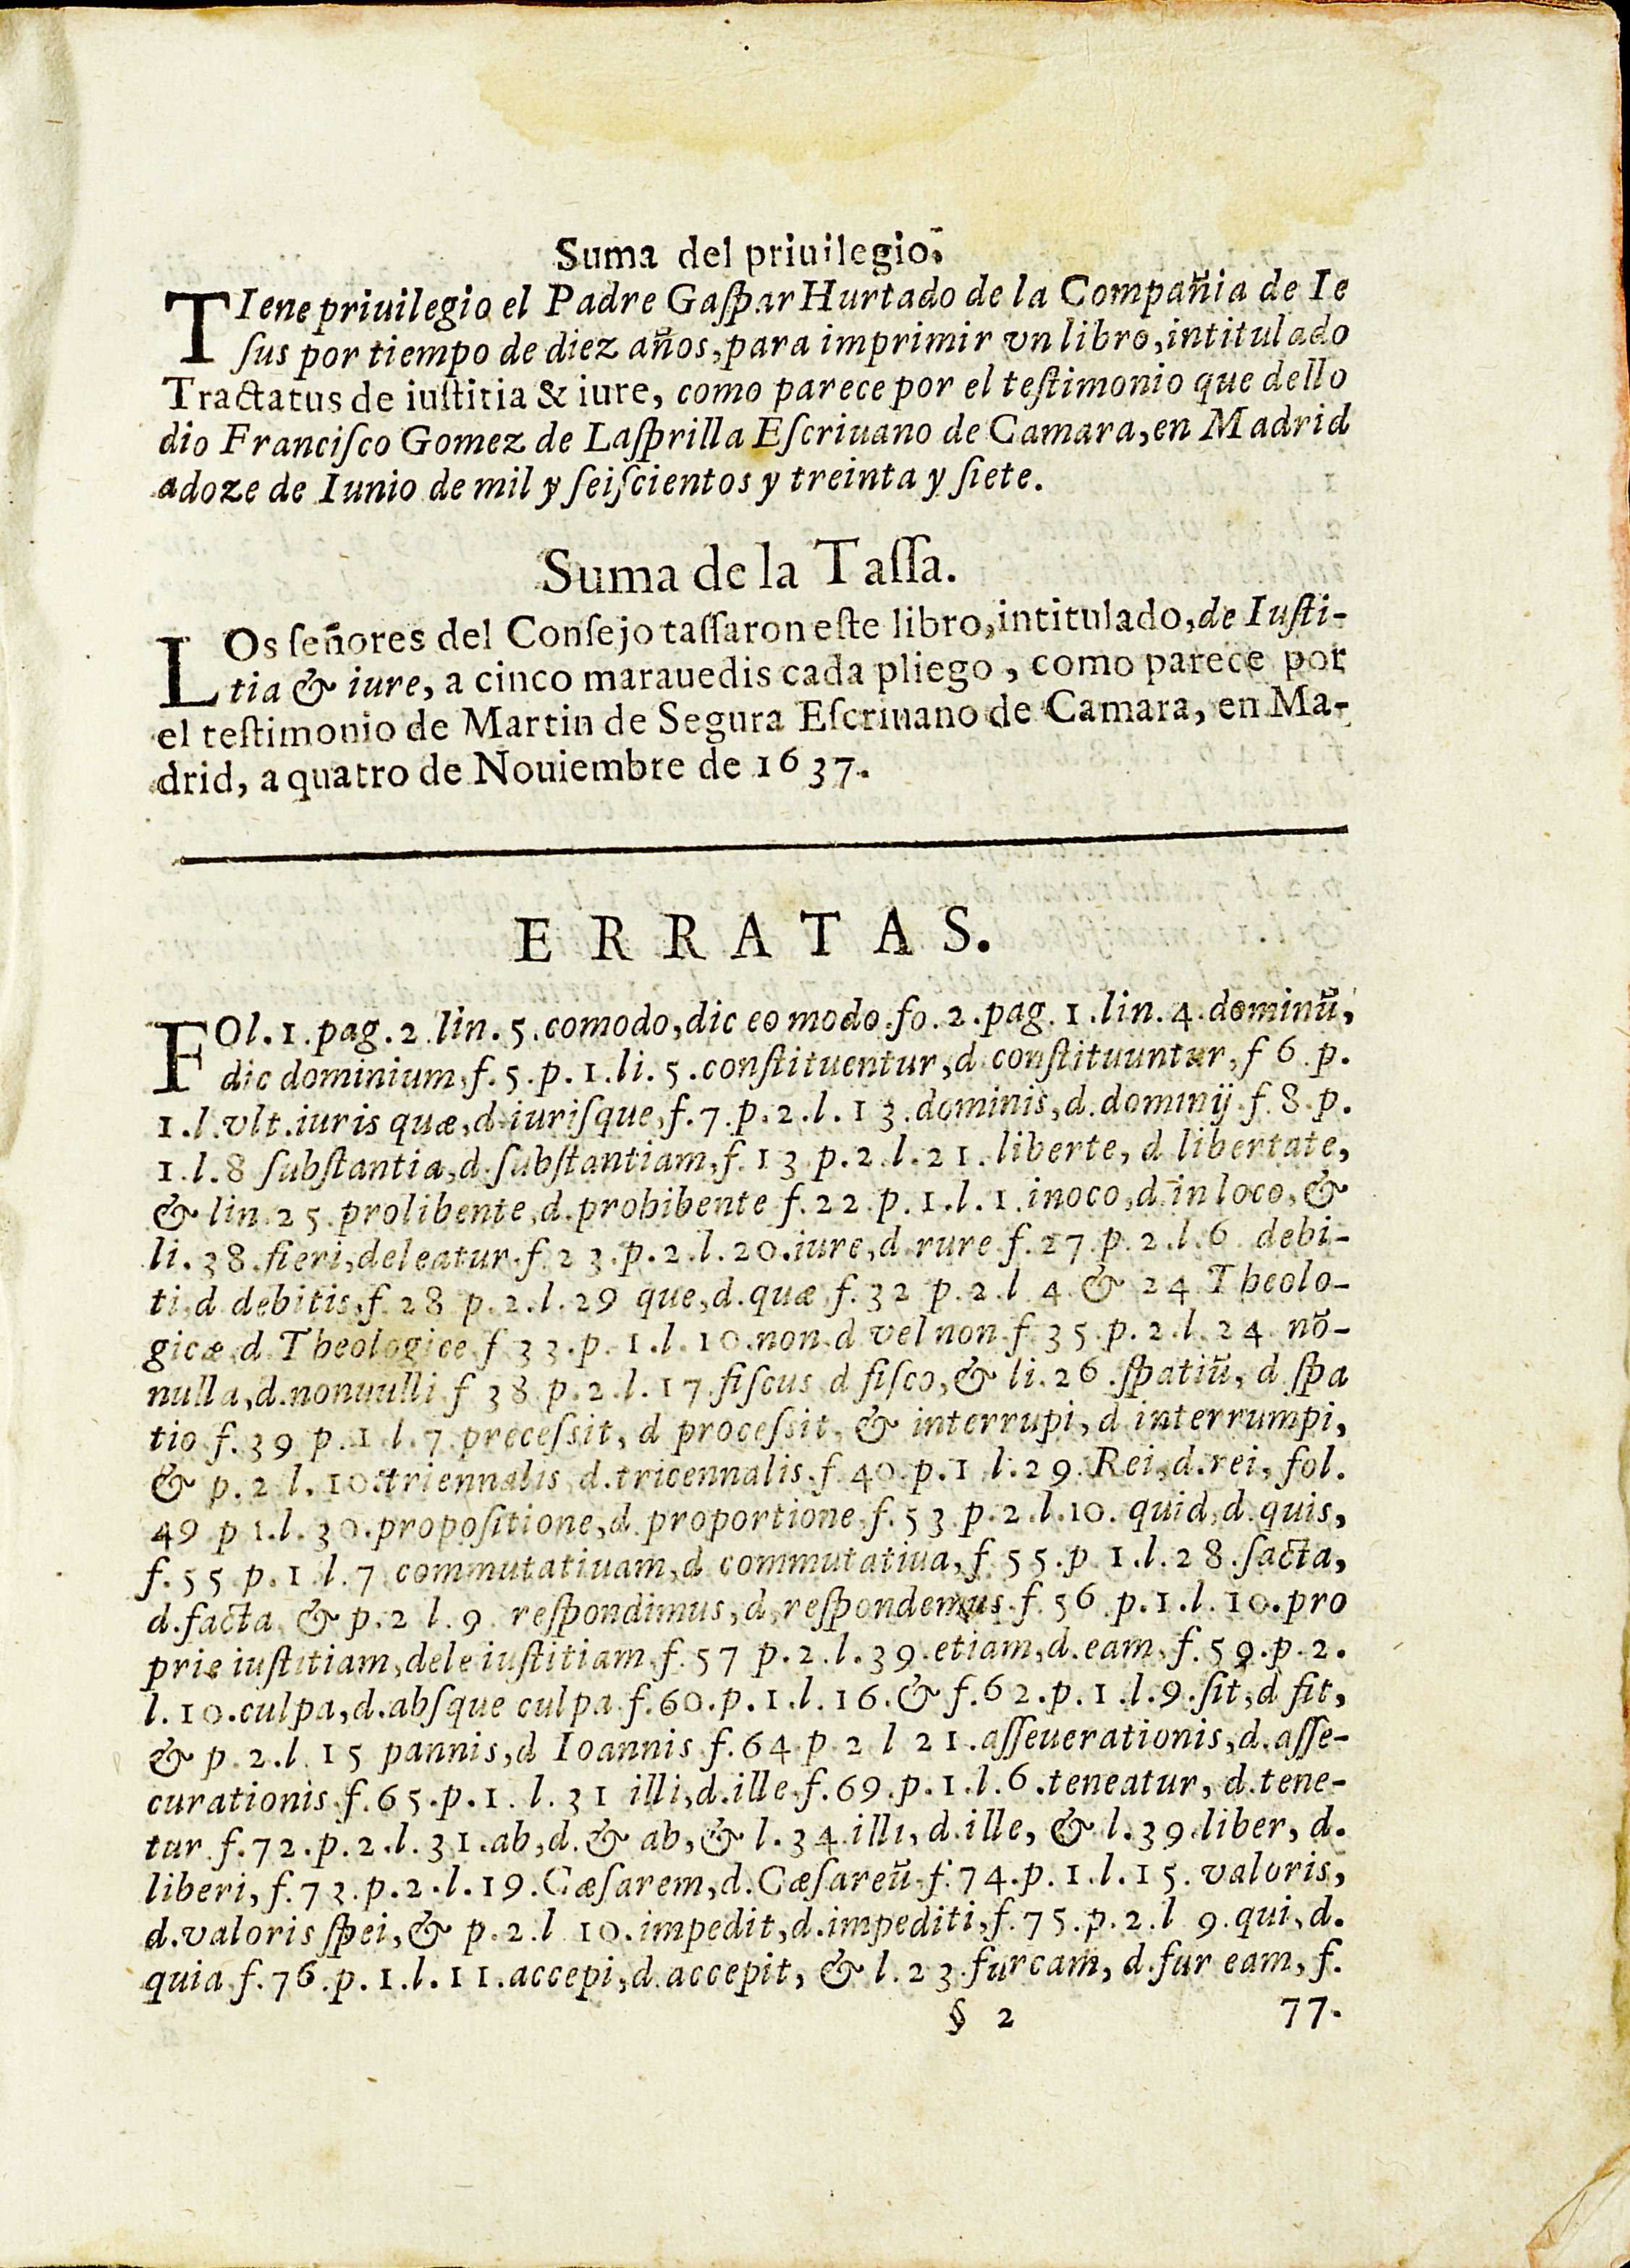 Suma del priuilegio.
TIene priuilegio el Padre Gaſpar Hurtado de la Compañia de Ie
ſus por tiempo de diez años, para imprimir vn libro, intitulado
Tractatus de iuſtitia & iure, como parece por el teſtimonio que dello
dio Franciſco Gomez de Laſprilla Eſcriuano de Camara, en Madrid
a doze de Iunio de mil y ſeiſcientos y treinta y ſiete.
Suma de la Taſſa.
LOs ſeñores del Conſejo taſſaron eſte libro, intitulado, de Iuſti-
tia & iure, a cinco marauedis cada pliego, como parece por
el teſtimonio de Martin de Segura Eſcriuano de Camara, en Ma-
drid, a quatro de Nouiembre de 1637.
ERRATAS.
FOl. 1. pag. 2 lin. 5. comodo, dic eo modo. fo. 2. pag. 1. lin. 4. dominũ,
dic dominium, f. 5. p. 1. li. 5. conſtituentur, d. conſtituuntur, f 6. p.
1. l. vlt. iuris quæ, d. iuriſque, f. 7. p. 2. l. 13. dominis, d. dominij. f. 8. p.
1. l. 8 ſubſtantia, d. ſubſtantiam, f. 13 p. 2. l. 21. liberte, d libertate,
& lin. 25. prolibente, d. prohibente f. 22. p. 1. l. 1. inoco, d. in loco, &
li. 38. fieri, deleatur. f 23. p. 2. l. 20. iure, d. rure f. 27. p. 2. l. 6. debi-
ti, d. debitis, f. 28 p. 2. l. 29 que, d. quæ f. 32 p. 2. l. 4. & 24 Theolo-
gicæ, d. Theologice f 33. p. 1. l. 10. non. d vel non. f 35. p. 2. l. 24. nõ-
nulla, d. nonuulli f 38. p. 2. l. 17. fiſcus d fiſco, & li. 26. ſpatiũ, d ſpa
tio f. 39 p. 1. l. 7. preceſsit, d proceſsit, & interrupi, d interrumpi,
& p. 2 l. 10. triennalis d. tricennalis. f 40. p. 1 l. 29. Rei, d. rei, fol.
49 p 1. l. 30. propoſitione, d. proportione. f. 53. p. 2. l. 10. quid, d. quis,
f. 55 p. 1 l. 7 commutatiuam, d commutatiua, f. 55. p. 1. l. 28. ſacta,
d. facta, & p. 2 l. 9. reſpondimus, d. reſpondemus. f. 56. p. 1. l. 10. pro
prie iuſtitiam, dele iuſtitiam. f. 57 p. 2. l. 39. etiam, d. eam, f. 59. p. 2.
l. 10. culpa, d. abſque culpa f. 60. p. 1. l. 16. & f. 62. p. 1. l. 9. ſit, d fit,
& p. 2. l. 15 pannis, d Ioannis. f. 64. p. 2 l 21. aſſeuerationis, d. aſſe-
curationis. f. 65. p. 1. l. 31 illi, d. ille. f. 69. p. 1. l. 6. teneatur, d. tene-
tur. f. 72. p. 2. l. 31. ab, d. & ab, & l. 34. illi, d. ille, & l. 39. liber, d.
liberi, f. 73. p. 2. l. 19. Cæſarem, d. Cæſareũ. f. 74. p. 1. l. 15. valoris,
d. valoris ſpei, & p. 2. l 10. impedit, d. impediti, f. 75. p. 2. l 9. qui, d.
quia f. 76. p. 1. l. 11. accepi, d. accepit, & l. 23. furcam, d. fur eam, f.
§ 2 77.